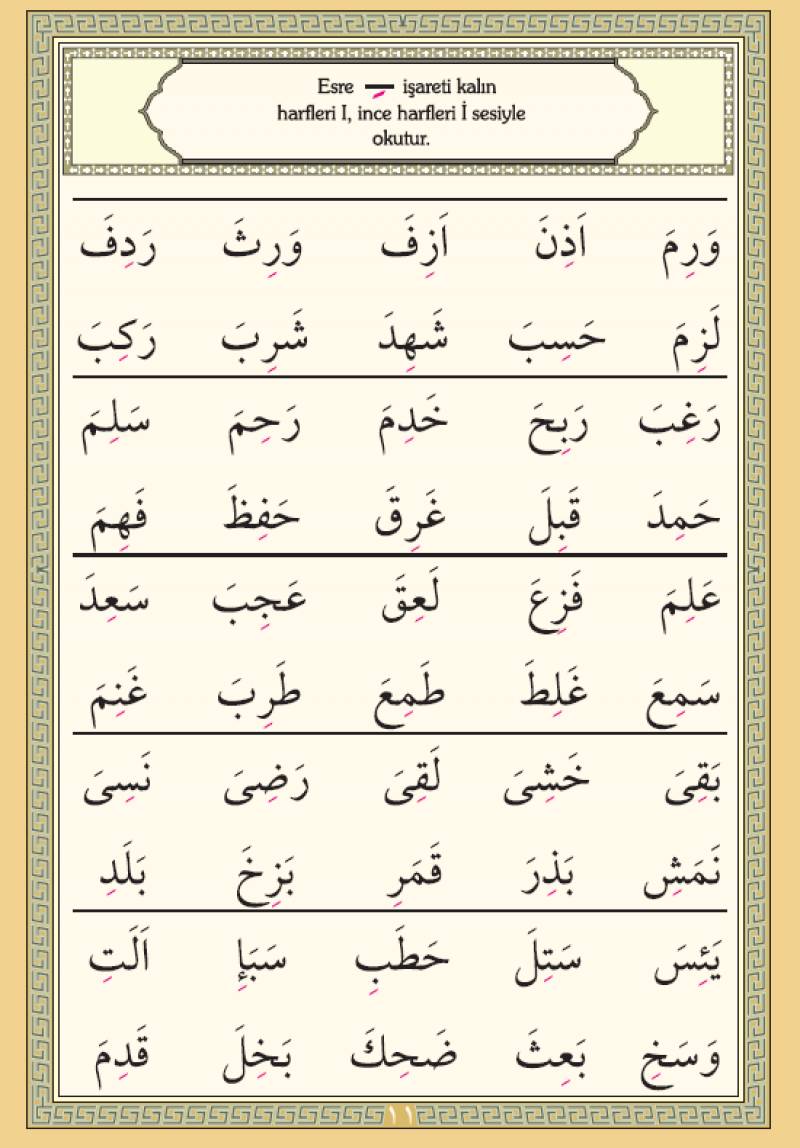 Esre ـِ işareti kalın
harfleri I, ince harfleri İ sesiyle
okutur.
وَرِمَ اَذِنَ اَزِفَ وَرِثَ رَدِفَ
لَزِمَ حَسِبَ شَهِدَ شَرِبَ رَكِبَ
رَغِبَ رَبِحَ خَدِمَ رَحِمَ سَلِمَ
حَمِدَ قَبِلَ غَرِقَ حَفِظَ فَهِمَ
عَلِمَ فَزِعَ لَعِقَ عَجِبَ سَعِدَ
سَمِعَ غَلِطَ طَمِعَ طَرِبَ غَنِمَ
بَقِىَ خَشِىَ لَقِىَ رَضِىَ نَسِىَ
نَمَشِ بَذِرَ قَمَرِ بَزِخَ بَلَدِ
يَئِسَ سَتِلَ حَطَبِ سَبَإِ اَلَتِ
وَسَخِ بَعِثَ ضَحِكَ بَخِلَ قَدِمَ
١١